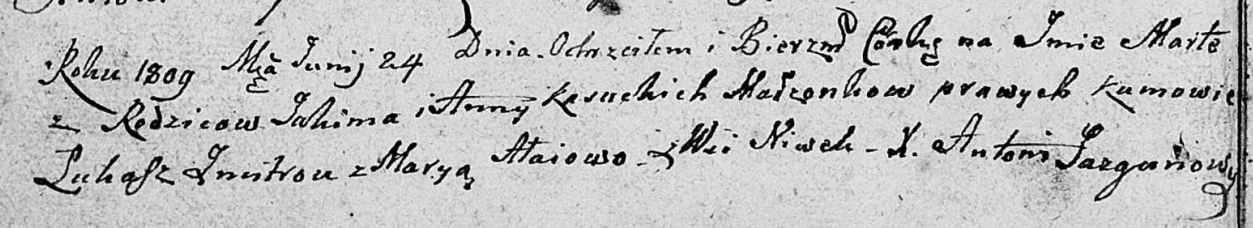 Roku 1809 Mca Junij 24 Dnia Ochrzciłem i Bierzm Córkę na Imie Martę
z Rodzicow Jakima i Anny Małżonkow prawych Kumowie
Łukasz Dmitrou z Maryą z Wsi Niwek - X. Antoni